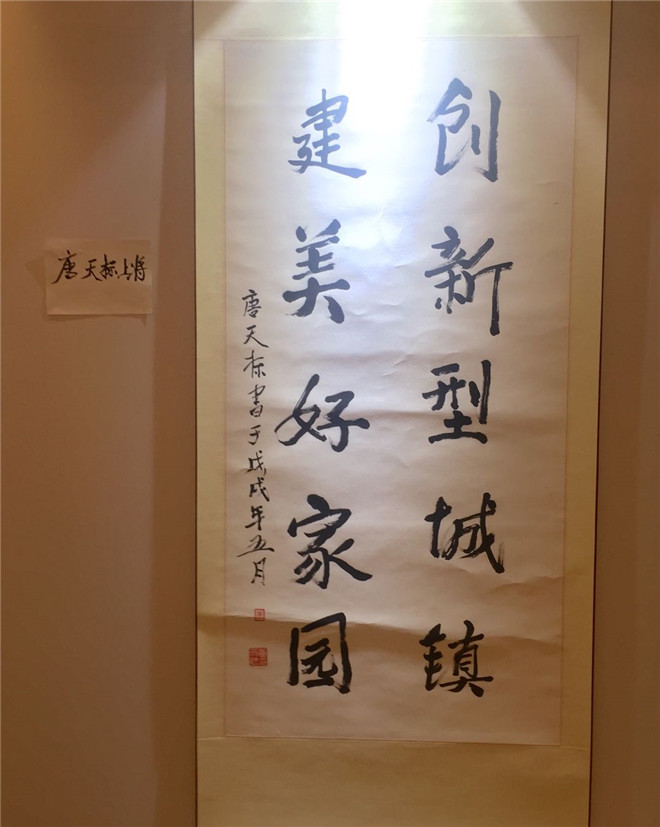 创新型城镇
建美好家园
唐天标书于戊戌年五月
唐天标上将